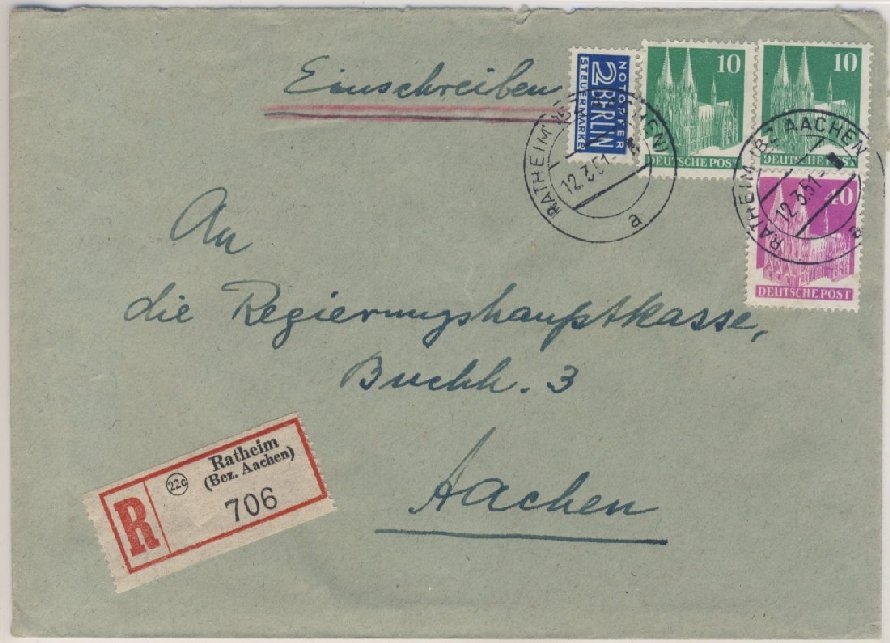 Einschreiben
NOTOPFER
2 BERLIN
STEUERMARKE
10
DEUTSCHE POST
10
DEUTSCHE POST
40
DEUTSCHE POST
RATHEIM (BZ AACHEN)
12.3.51
a
RATHEIM (BZ AACHEN)
12.3.51
a
An
die Regierungshauptkasse,
Buchh. 3
Aachen
R
22c
Ratheim
(Bez. Aachen)
706